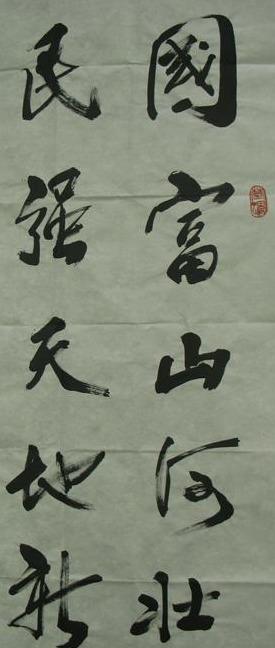 國富山河壯
民强天地新